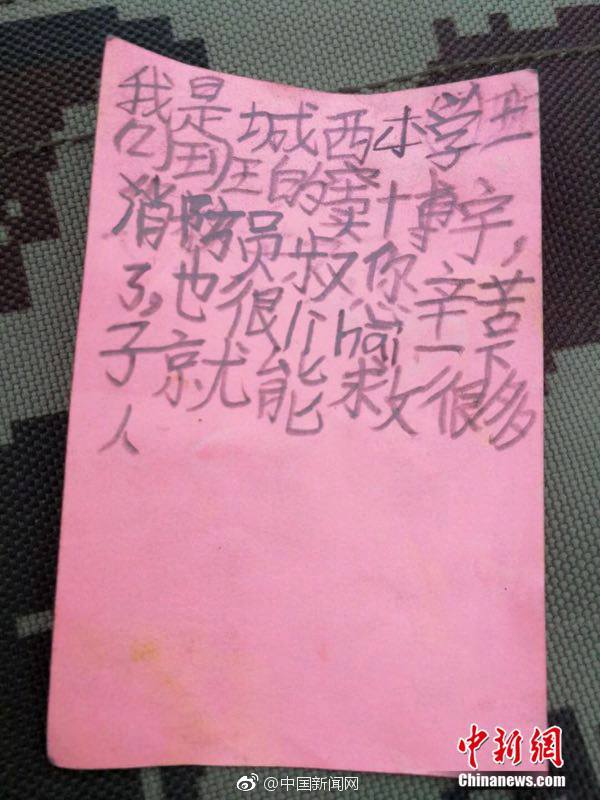 我是城西小学三
(2)班的窦博宇,
消防员叔你辛苦
了,也很hai一下
子就能救很多
人
@中国新闻网
中新网
Chinanews.com